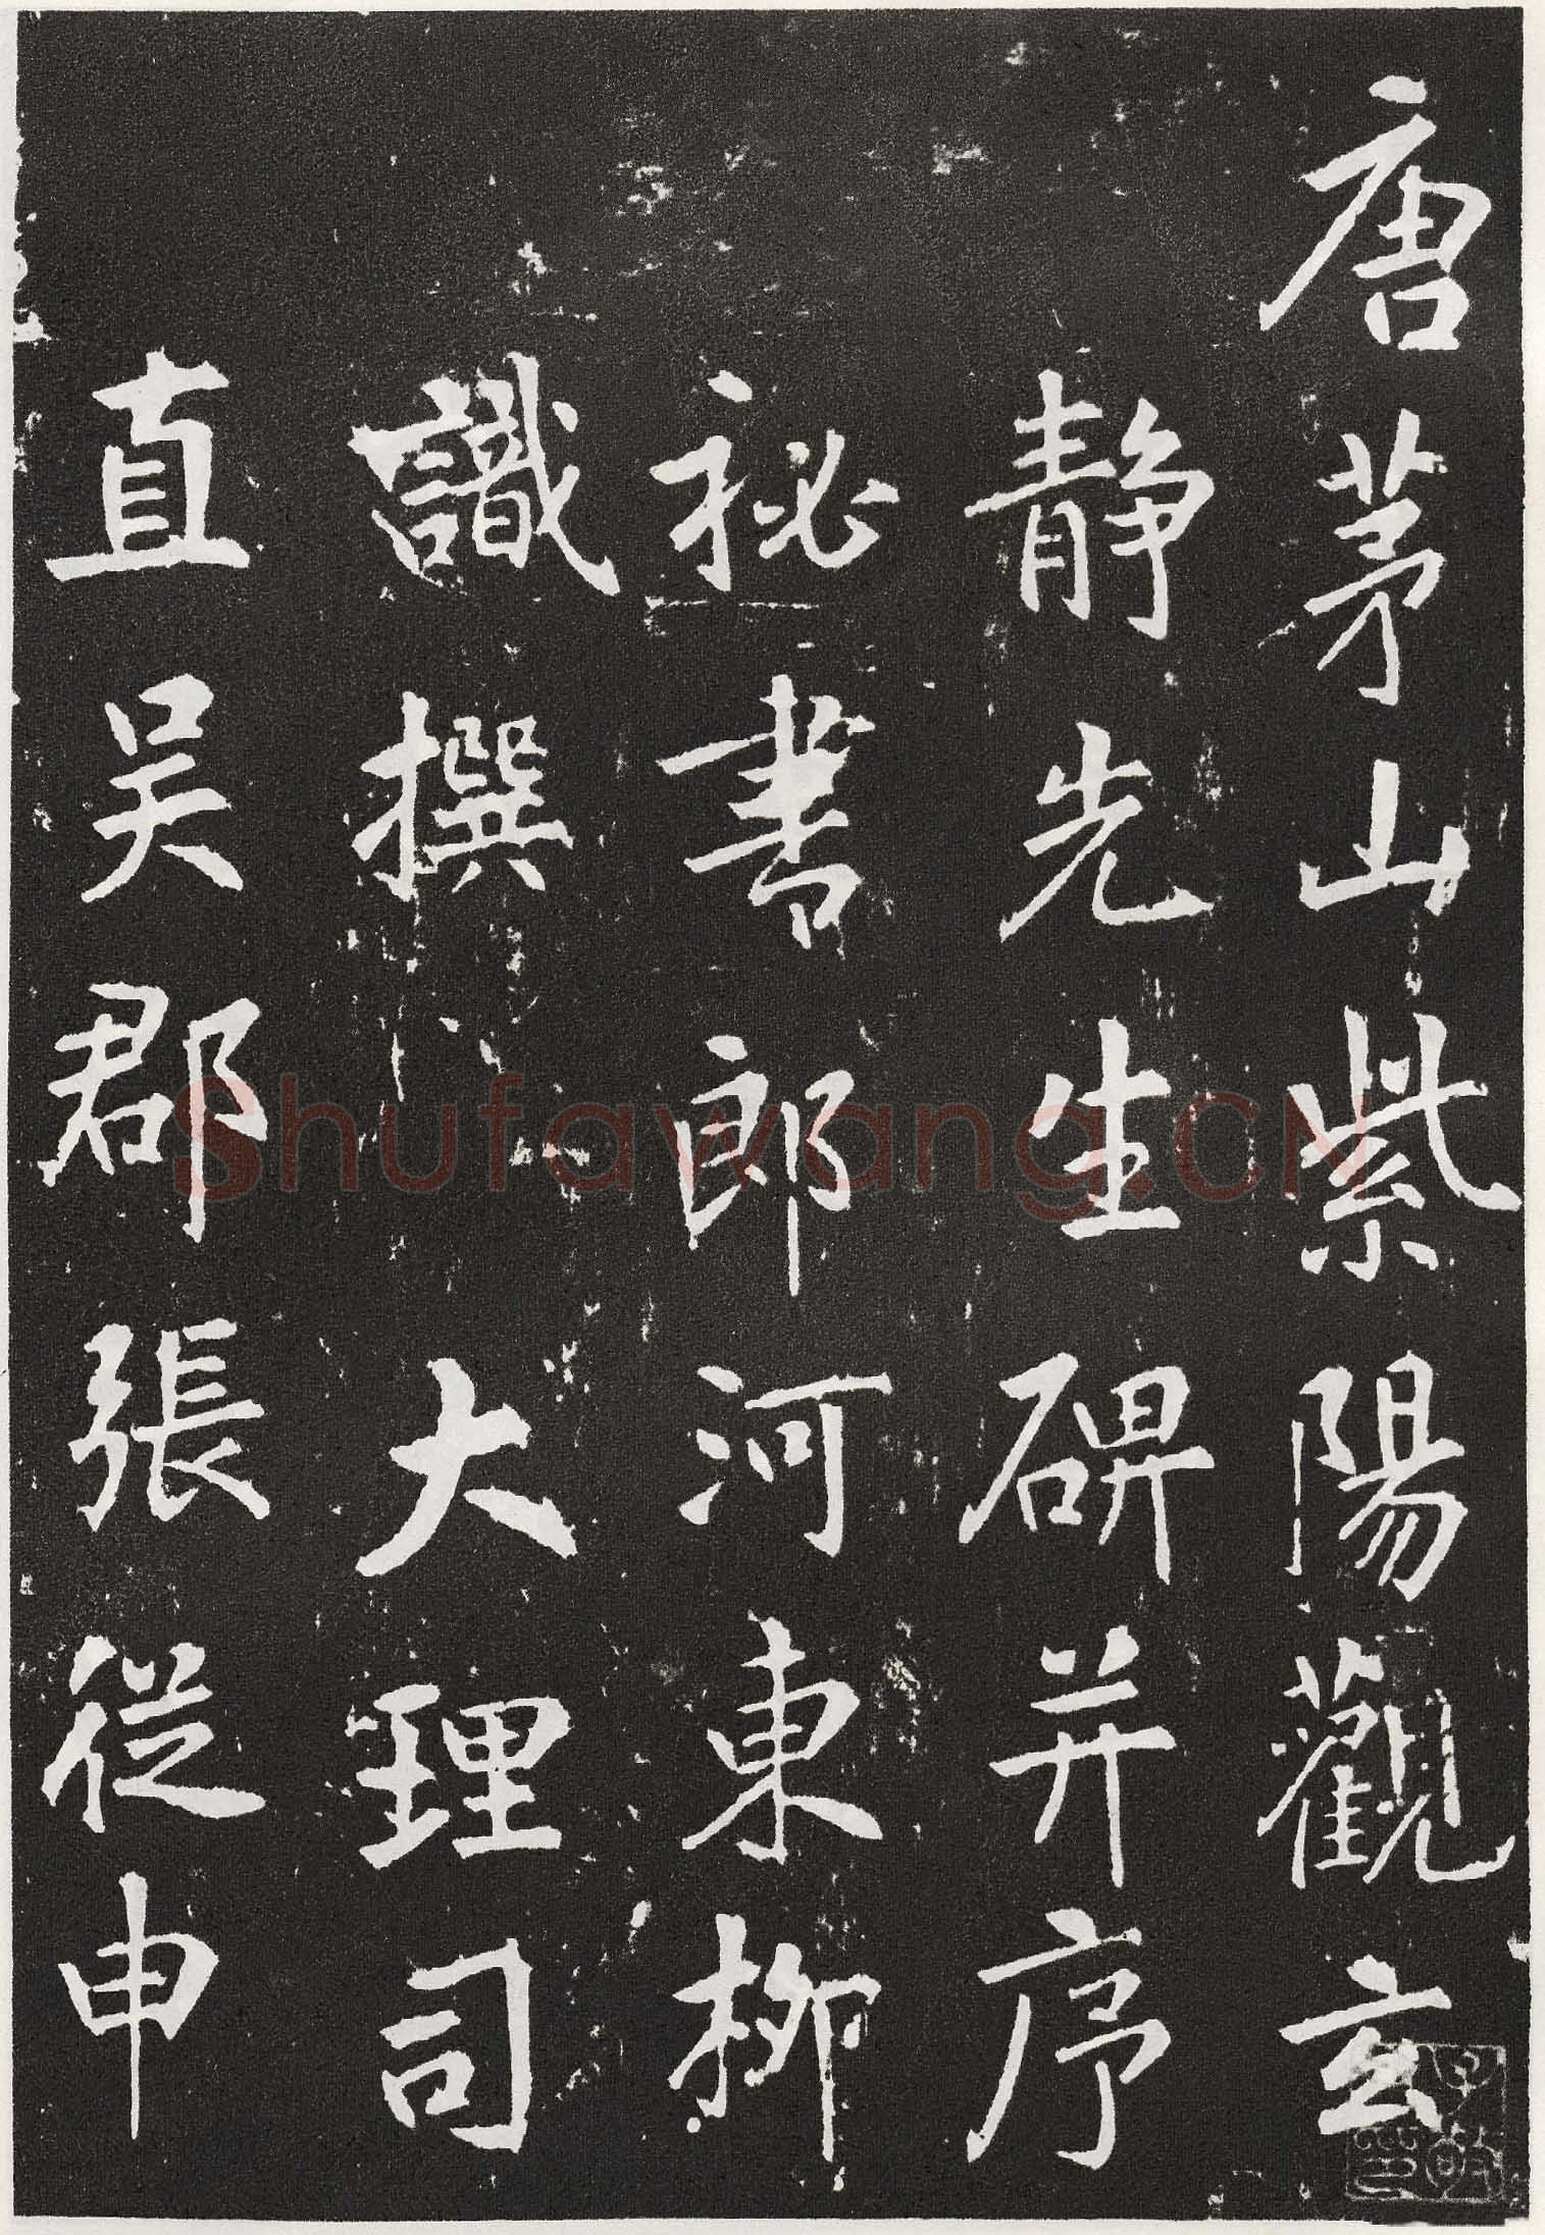 唐茅山紫陽觀玄
靜先生碑并序
祕書郎河東柳
識撰大理司
直吳郡張從申
Shufawang.CN